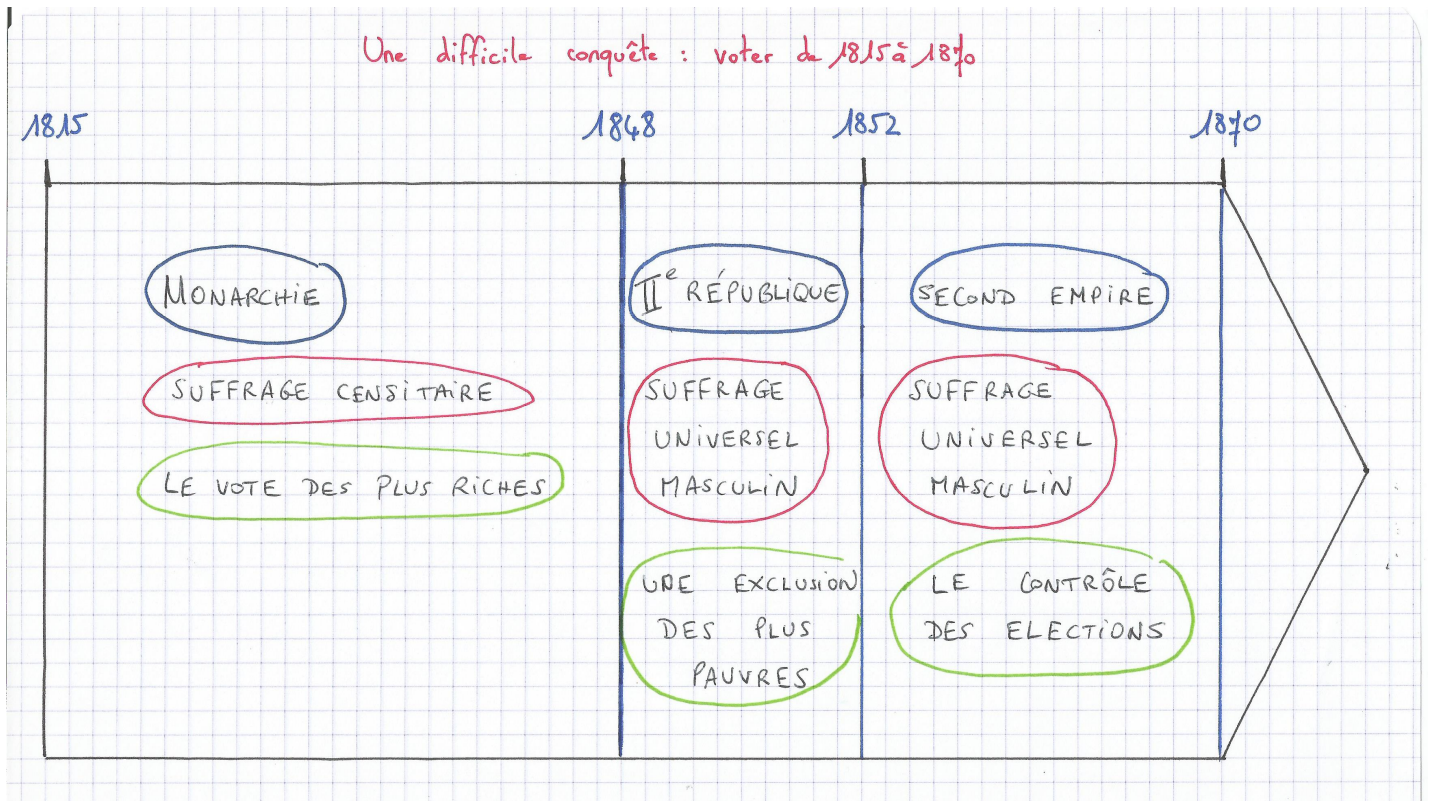 Une difficile conquête : voter de 1815 à 1870
1815
1848
1852
1870
MONARCHIE
SUFFRAGE CENSITAIRE
LE VOTE DES PLUS RICHES
IIe RÉPUBLIQUE
SUFFRAGE
UNIVERSEL
MASCULIN
UNE EXCLUSION
DES PLUS
PAUVRES
SECOND EMPIRE
SUFFRAGE
UNIVERSEL
MASCULIN
LE CONTRÔLE
DES ELECTIONS